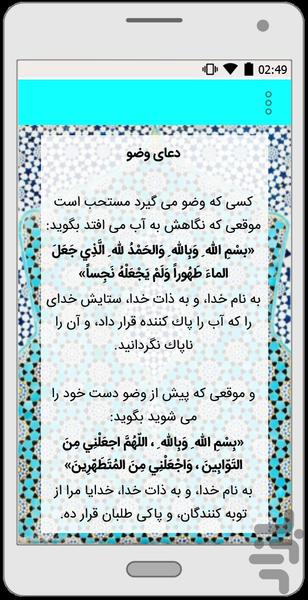 02:49
دعای وضو
کسی که وضو می گیرد مستحب است
موقعی که نگاهش به آب می افتد بگوید:
«بِسْمِ اللهِ وَبِاللهِ وَالحَمْدُ للهِ الَّذِي جَعَلَ
الماءَ طَهُوراً وَلَمْ يَجْعَلْهُ نَجِساً»
به نام خدا، و به ذات خدا، ستایش خدای
را که آب را پاك کننده قرار داد، و آن را
ناپاك نگردانید.
و موقعی که پیش از وضو دست خود را
می شوید بگوید:
«بِسْمِ اللهِ وَبِاللهِ ، اللّهُمَّ اجعَلْنِي مِنَ
التَوّابِينَ ، وَاجْعَلْنِي مِنَ المُتَطَهِّرِينَ»
به نام خدا، و به ذات خدا، خدایا مرا از
توبه کنندگان، و پاکی طلبان قرار ده.
بازار